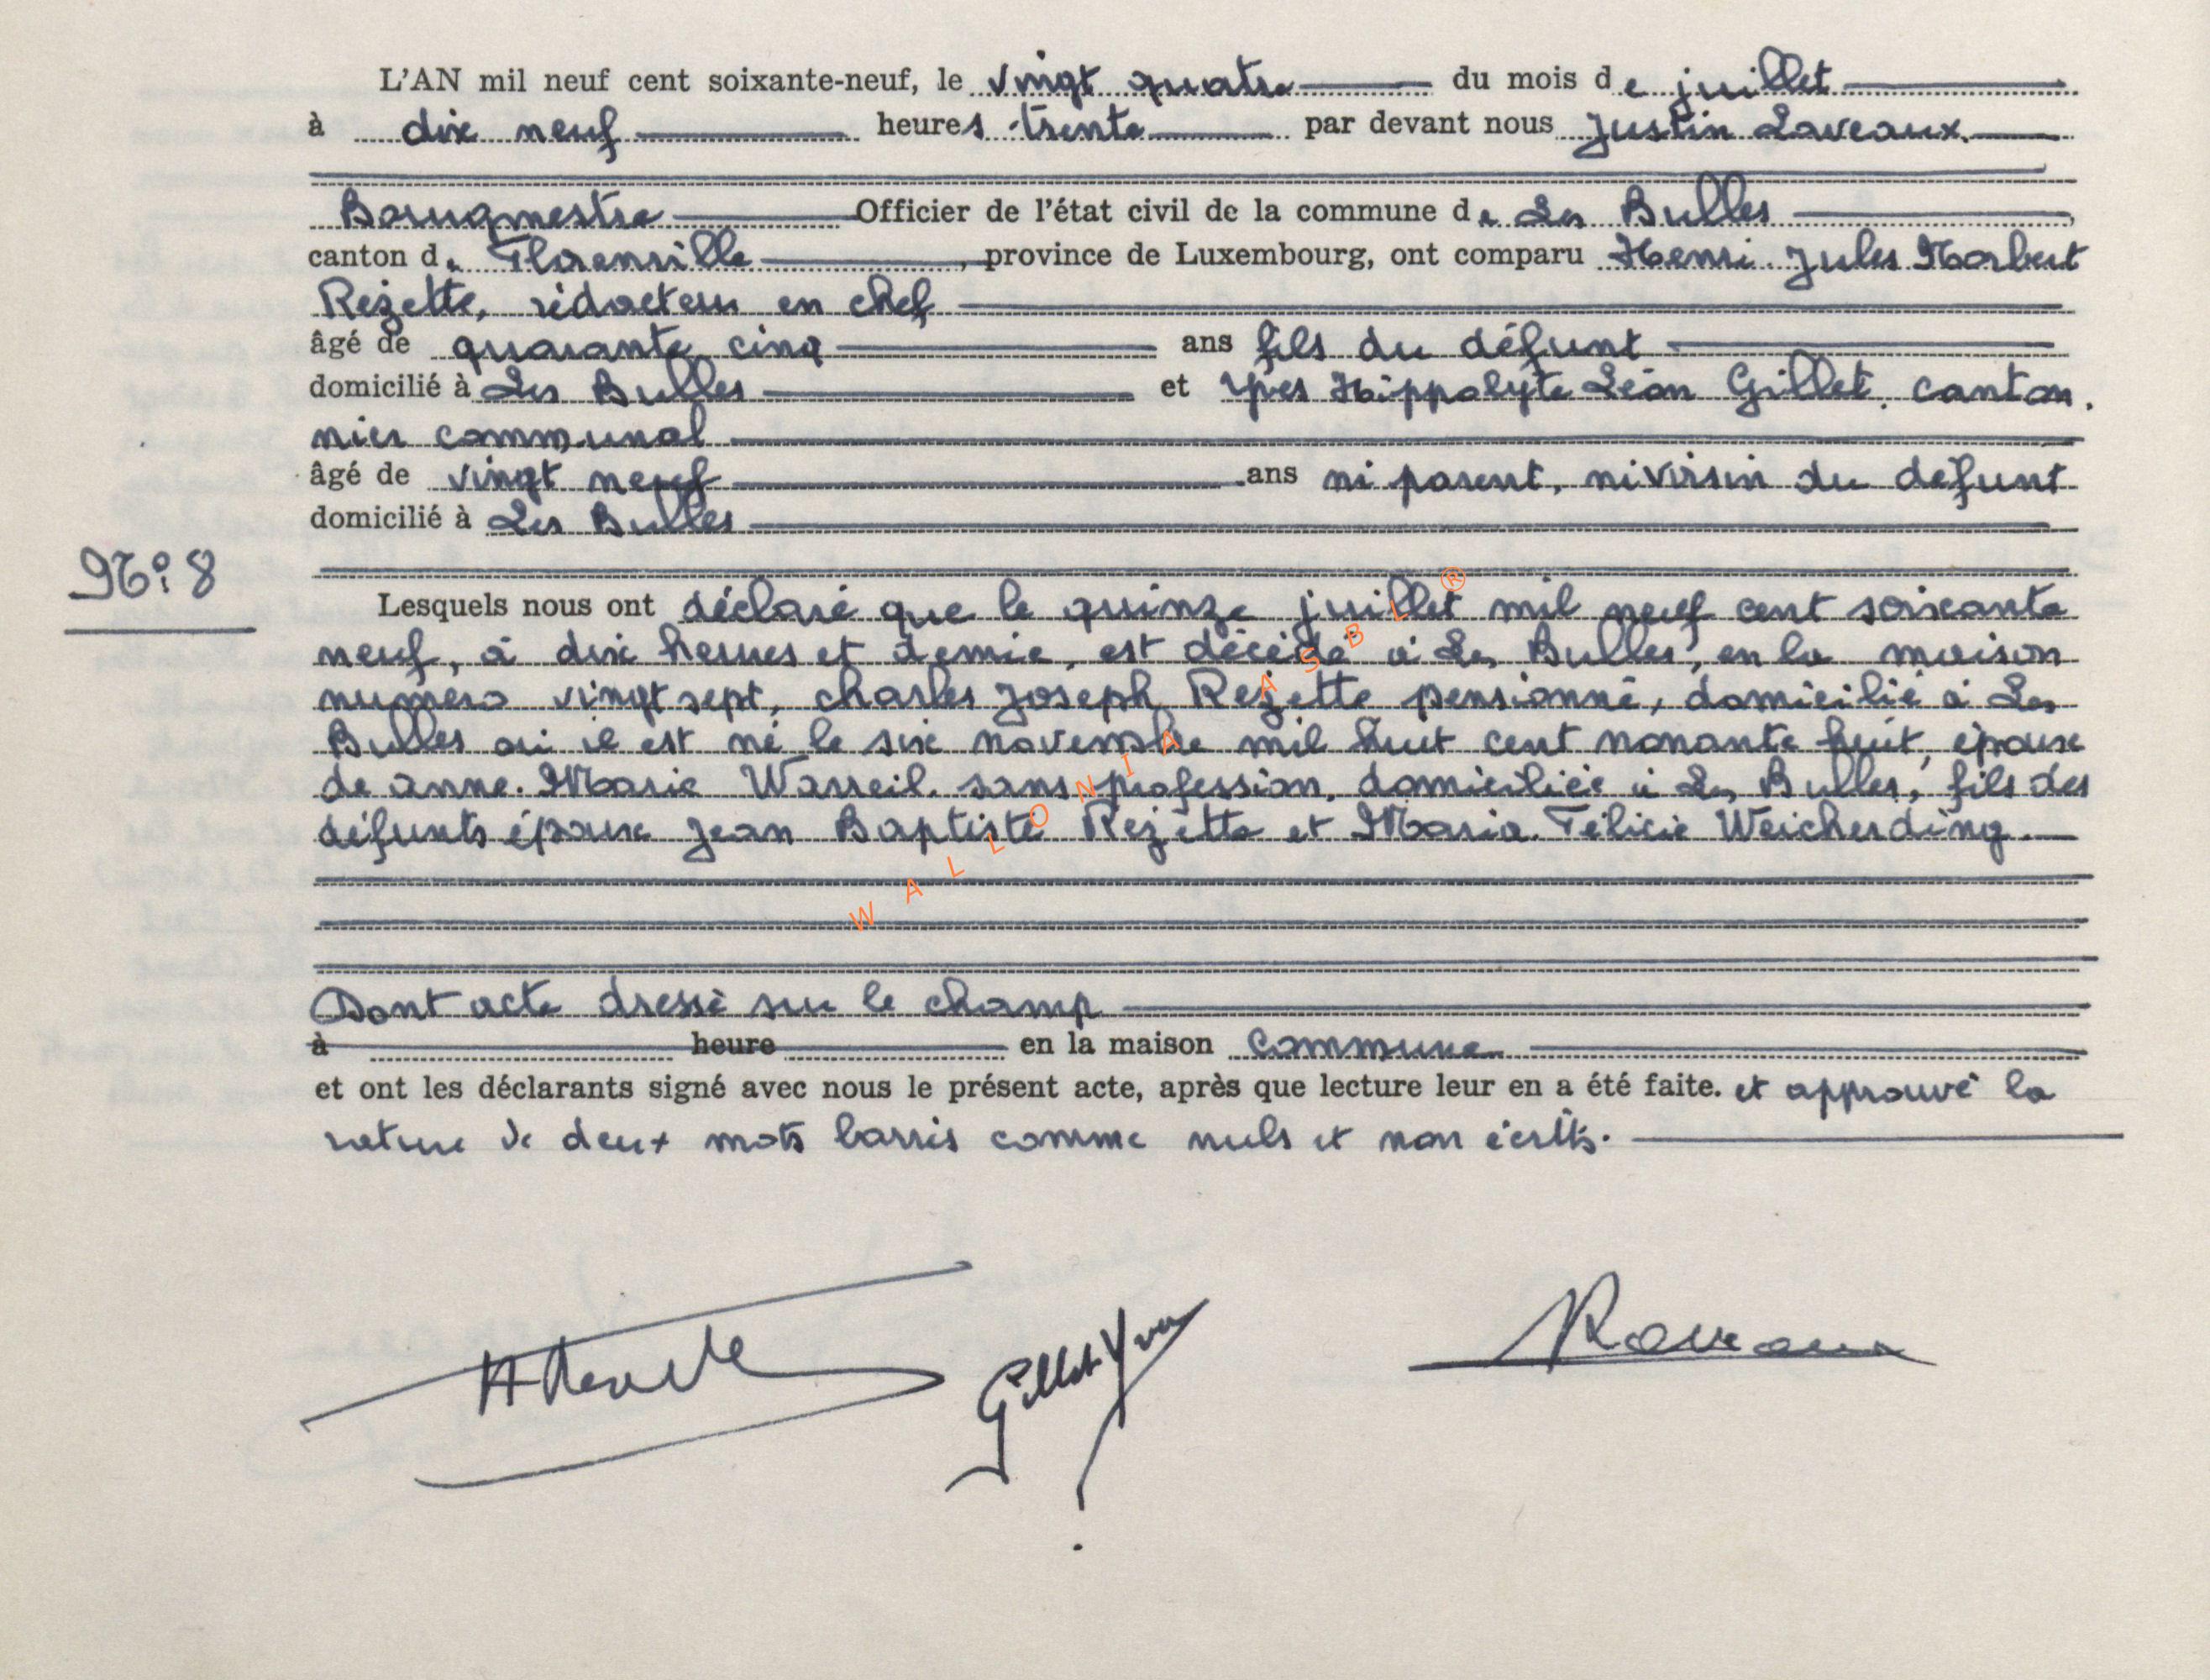 L'AN mil neuf cent soixante-neuf, le vingt quatre du mois de juillet
à dix neuf heures trente par devant nous Justin Laveaux.
Bourgmestre Officier de l'état civil de la commune de Les Bulles,
canton de Florenville, province de Luxembourg, ont comparu Henri Jules Norbert
Rezette, rédacteur en chef
âgé de quarante cinq ans fils du défunt
domicilié à Les Bulles et Yves Hippolyte Léon Gillet, canton.
nier communal
âgé de vingt neuf ans ni parent, ni voisin du défunt
domicilié à Les Bulles
N° 8
Lesquels nous ont déclaré que le quinze juillet mil neuf cent soixante
neuf, à dix heures et demie, est décédé à Les Bulles, en la maison
numero vingt sept, Charles Joseph Rezette pensionné, domicilié à Les
Bulles où il est né le six novembre mil huit cent nonante huit, époux
de Anne-Marie Warreil, sans profession, domiciliée à Les Bulles, fils des
défunts époux Jean Baptiste Rezette et Maria Félicie Weicherding.
Dont acte dressé sur le champ
à heure en la maison Commune
et ont les déclarants signé avec nous le présent acte, après que lecture leur en a été faite. et approuvé la
rature de deux mots barrés comme nuls et non écrits.
Gillet Yves
WALLONIA ASBL ®